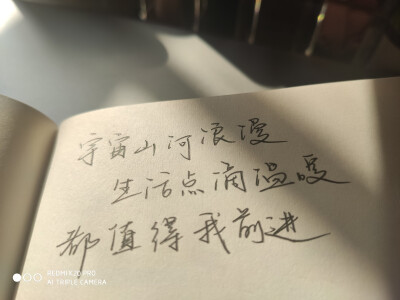 宇宙山河浪漫
生活点滴温暖
都值得我前进
REDMI K20 PRO
AI TRIPLE CAMERA